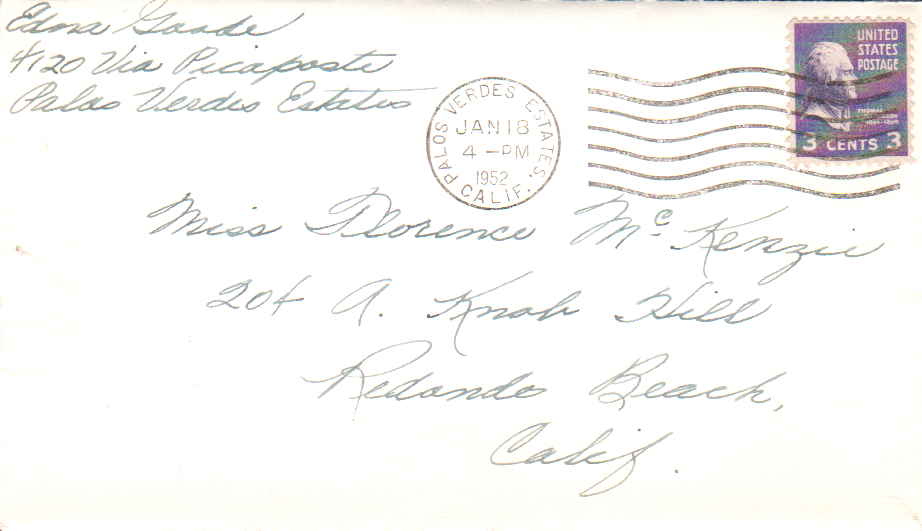 Edna Goode
4120 Via Picaposte
Palos Verdes Estates
PALOS VERDES ESTATES, CALIF.
JAN 18
4 -PM
1952
UNITED
STATES
POSTAGE
THOMAS
3 CENTS 3
Miss Florence Mc Kenzie
204 A. Knob Hill
Redondo Beach,
Calif.